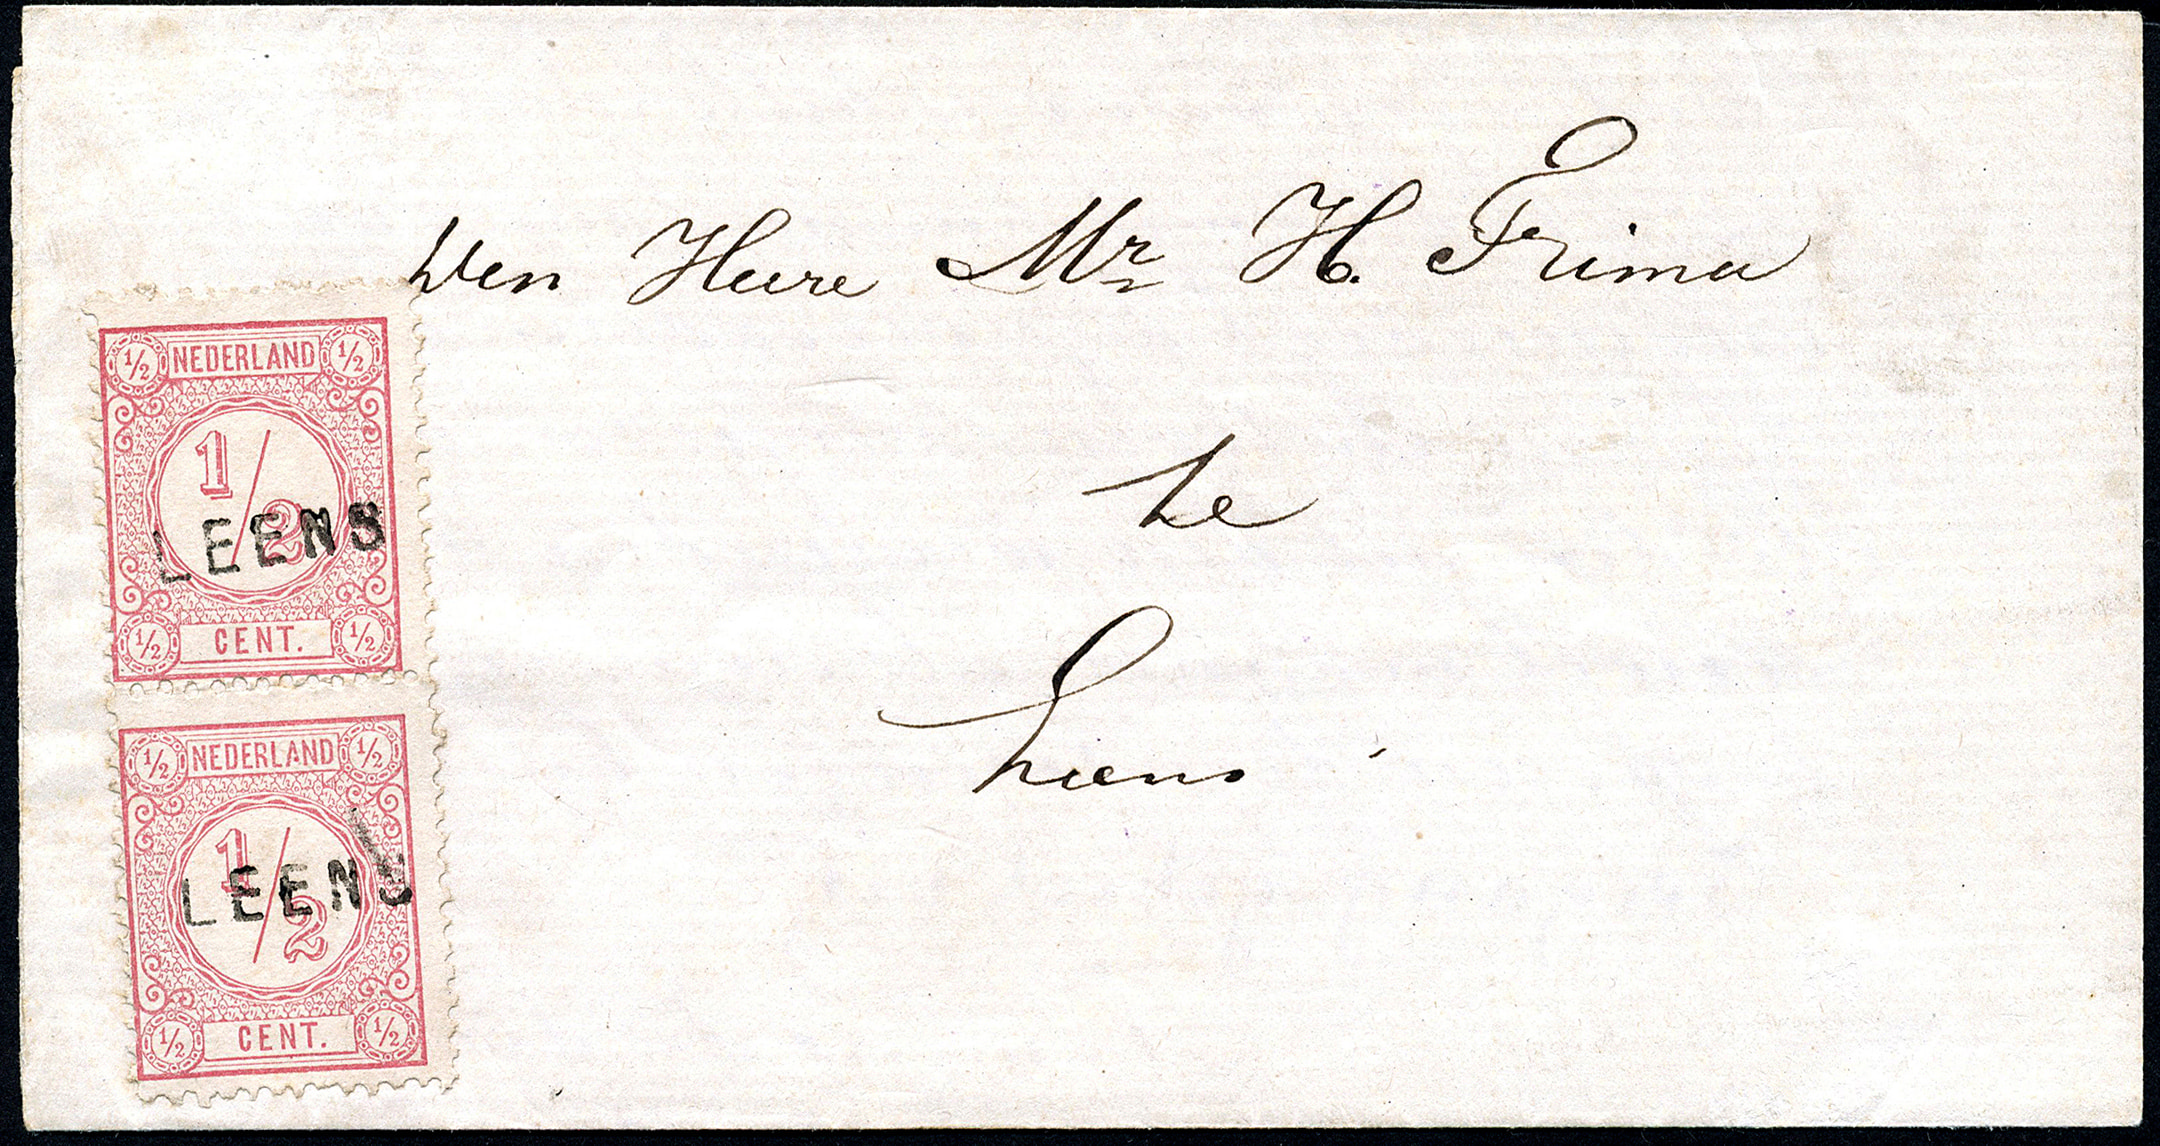 Den Heere Mr H. Frima
te
Leens
1/2 NEDERLAND 1/2
1/2
LEENS
1/2 CENT. 1/2
1/2 NEDERLAND 1/2
1/2
LEENS
1/2 CENT. 1/2